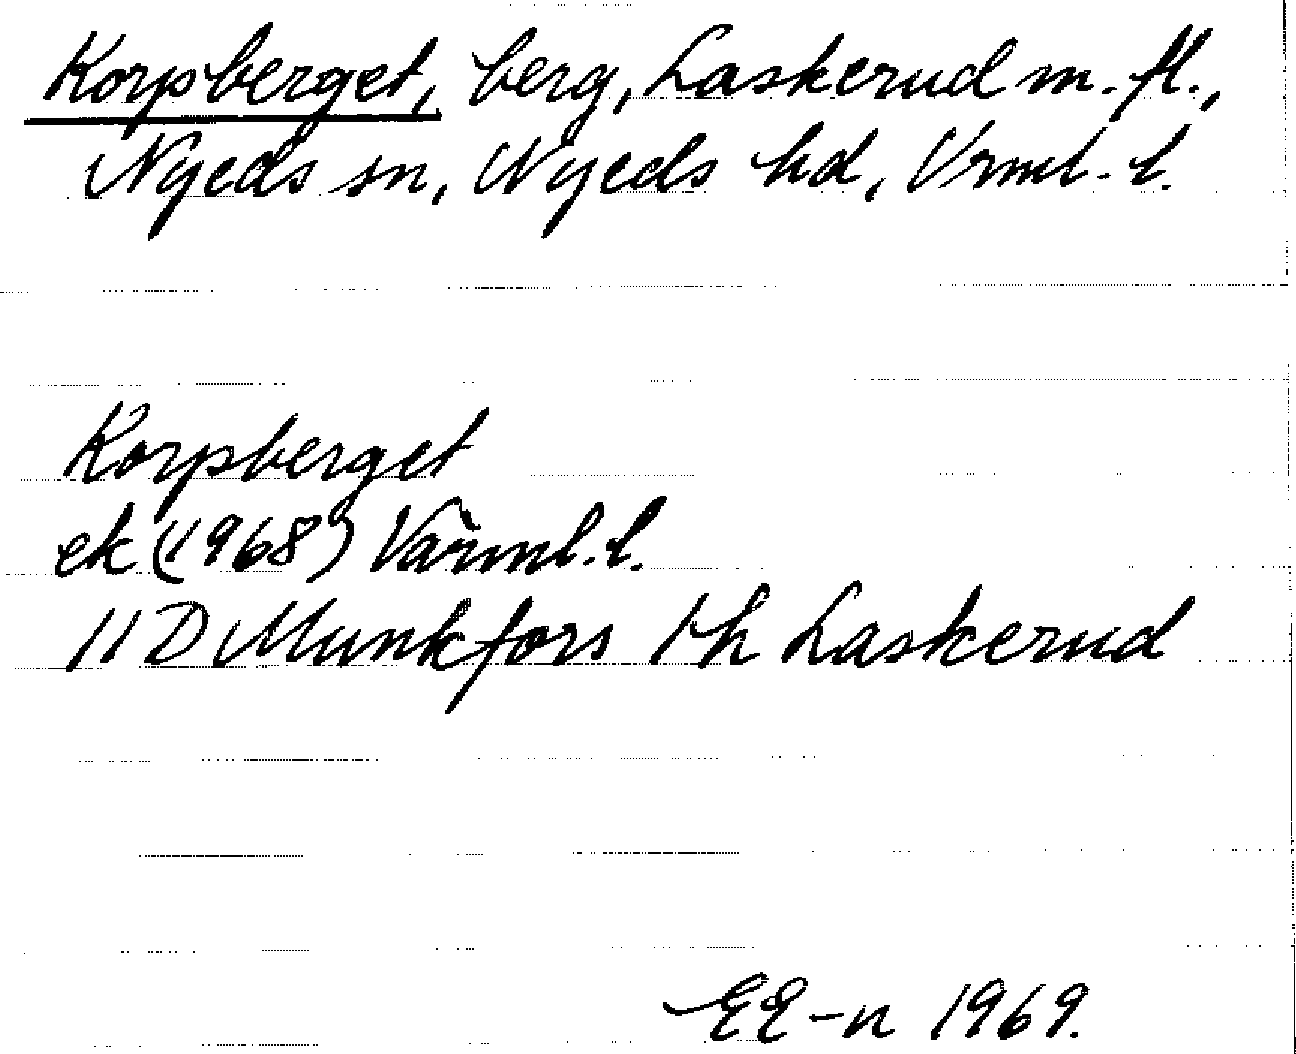 Korpberget, berg, Laskerud m. fl.,
Nyeds sn, Nyeds hd, Vrml. l.
Korpberget
ek (1968) Värml. l.
11 D Munkfors 1 h Laskerud
EE-n 1969.